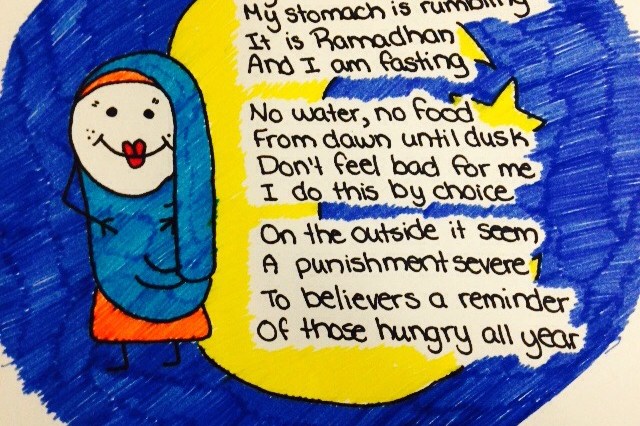 My stomach is rumbling
It is Ramadhan
And I am fasting
No water, no food
From dawn until dusk
Don't feel bad for me
I do this by choice
On the outside it seem
A punishment severe
To believers a reminder
Of those hungry all year